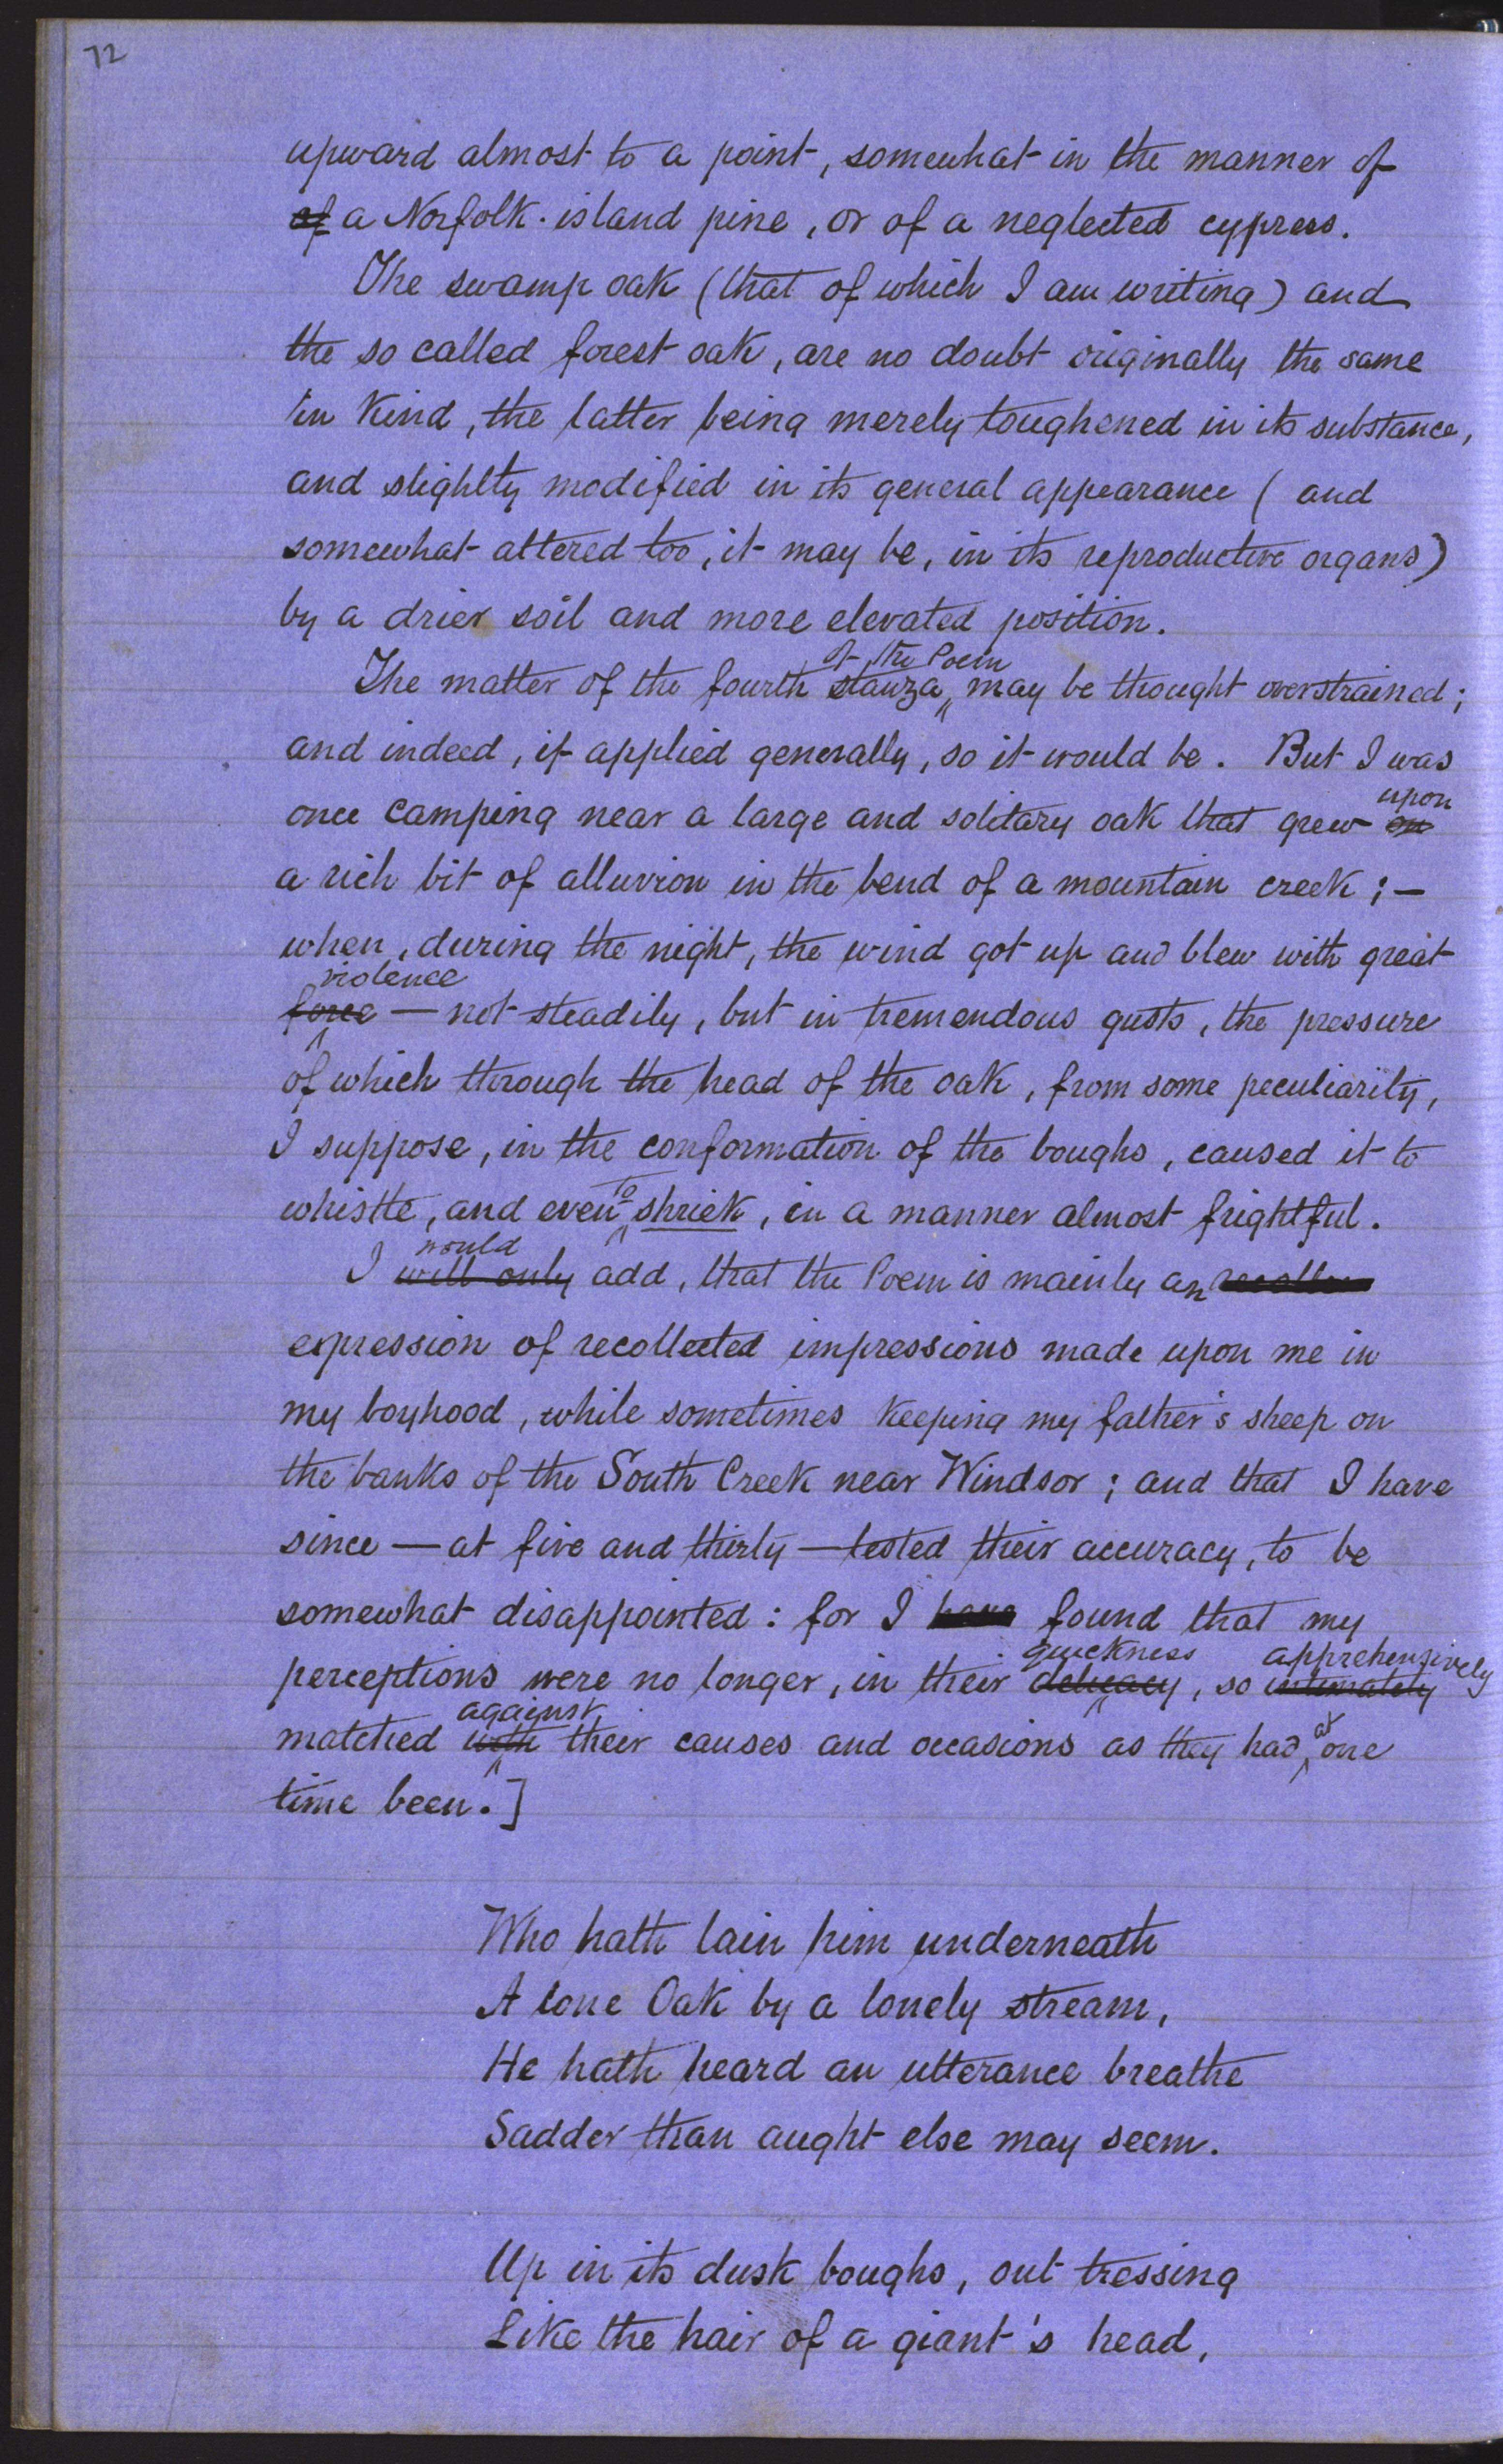 72
upward almost to a point, somewhat in the manner of
of a Norfolk-island pine, or of a neglected cypress.
The swamp oak (that of which I am writing) and
the so called forest oak, are no doubt originally the same
in kind, the latter being merely toughened in its substance,
and slighlty modified in its general appearance (and
somewhat altered too, it may be, in its reproductive organs)
by a drier soil and more elevated position.
of the Poem
The matter of the fourth stanza may be thought overstrained;
and indeed, if applied generally, so it would be. But I was
upon
once camping near a large and solitary oak that grew on
a rich bit of alluvion in the bend of a mountain creek; —
when, during the night, the wind got up and blew with great
violence
force — not steadily, but in tremendous gusts, the pressure
of which through the head of the oak, from some peculiarity,
I suppose, in the conformation of the boughs, caused it to
to
whistle, and even shriek, in a manner almost frightful.
would
I will only add, that the Poem is mainly an
expression of recollected impressions made upon me in
my boyhood, while sometimes keeping my father's sheep on
the banks of the South Creek near Windsor; and that I have
since — at five and thirty — tested their accuracy, to be
somewhat disappointed: for I have found that my
quickness apprehensively
perceptions were no longer, in their delicacy, so intimately
against at
matched with their causes and occasions as they had one
time been.]
Who hath lain him underneath
A lone Oak by a lonely stream,
He hath heard an utterance breathe
Sadder than aught else may seem.
Up in its dusk boughs, out tressing
Like the hair of a giant's head,